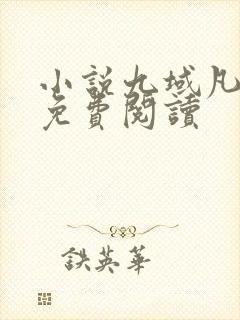 小說九域凡
免費閱讀
鉄英華